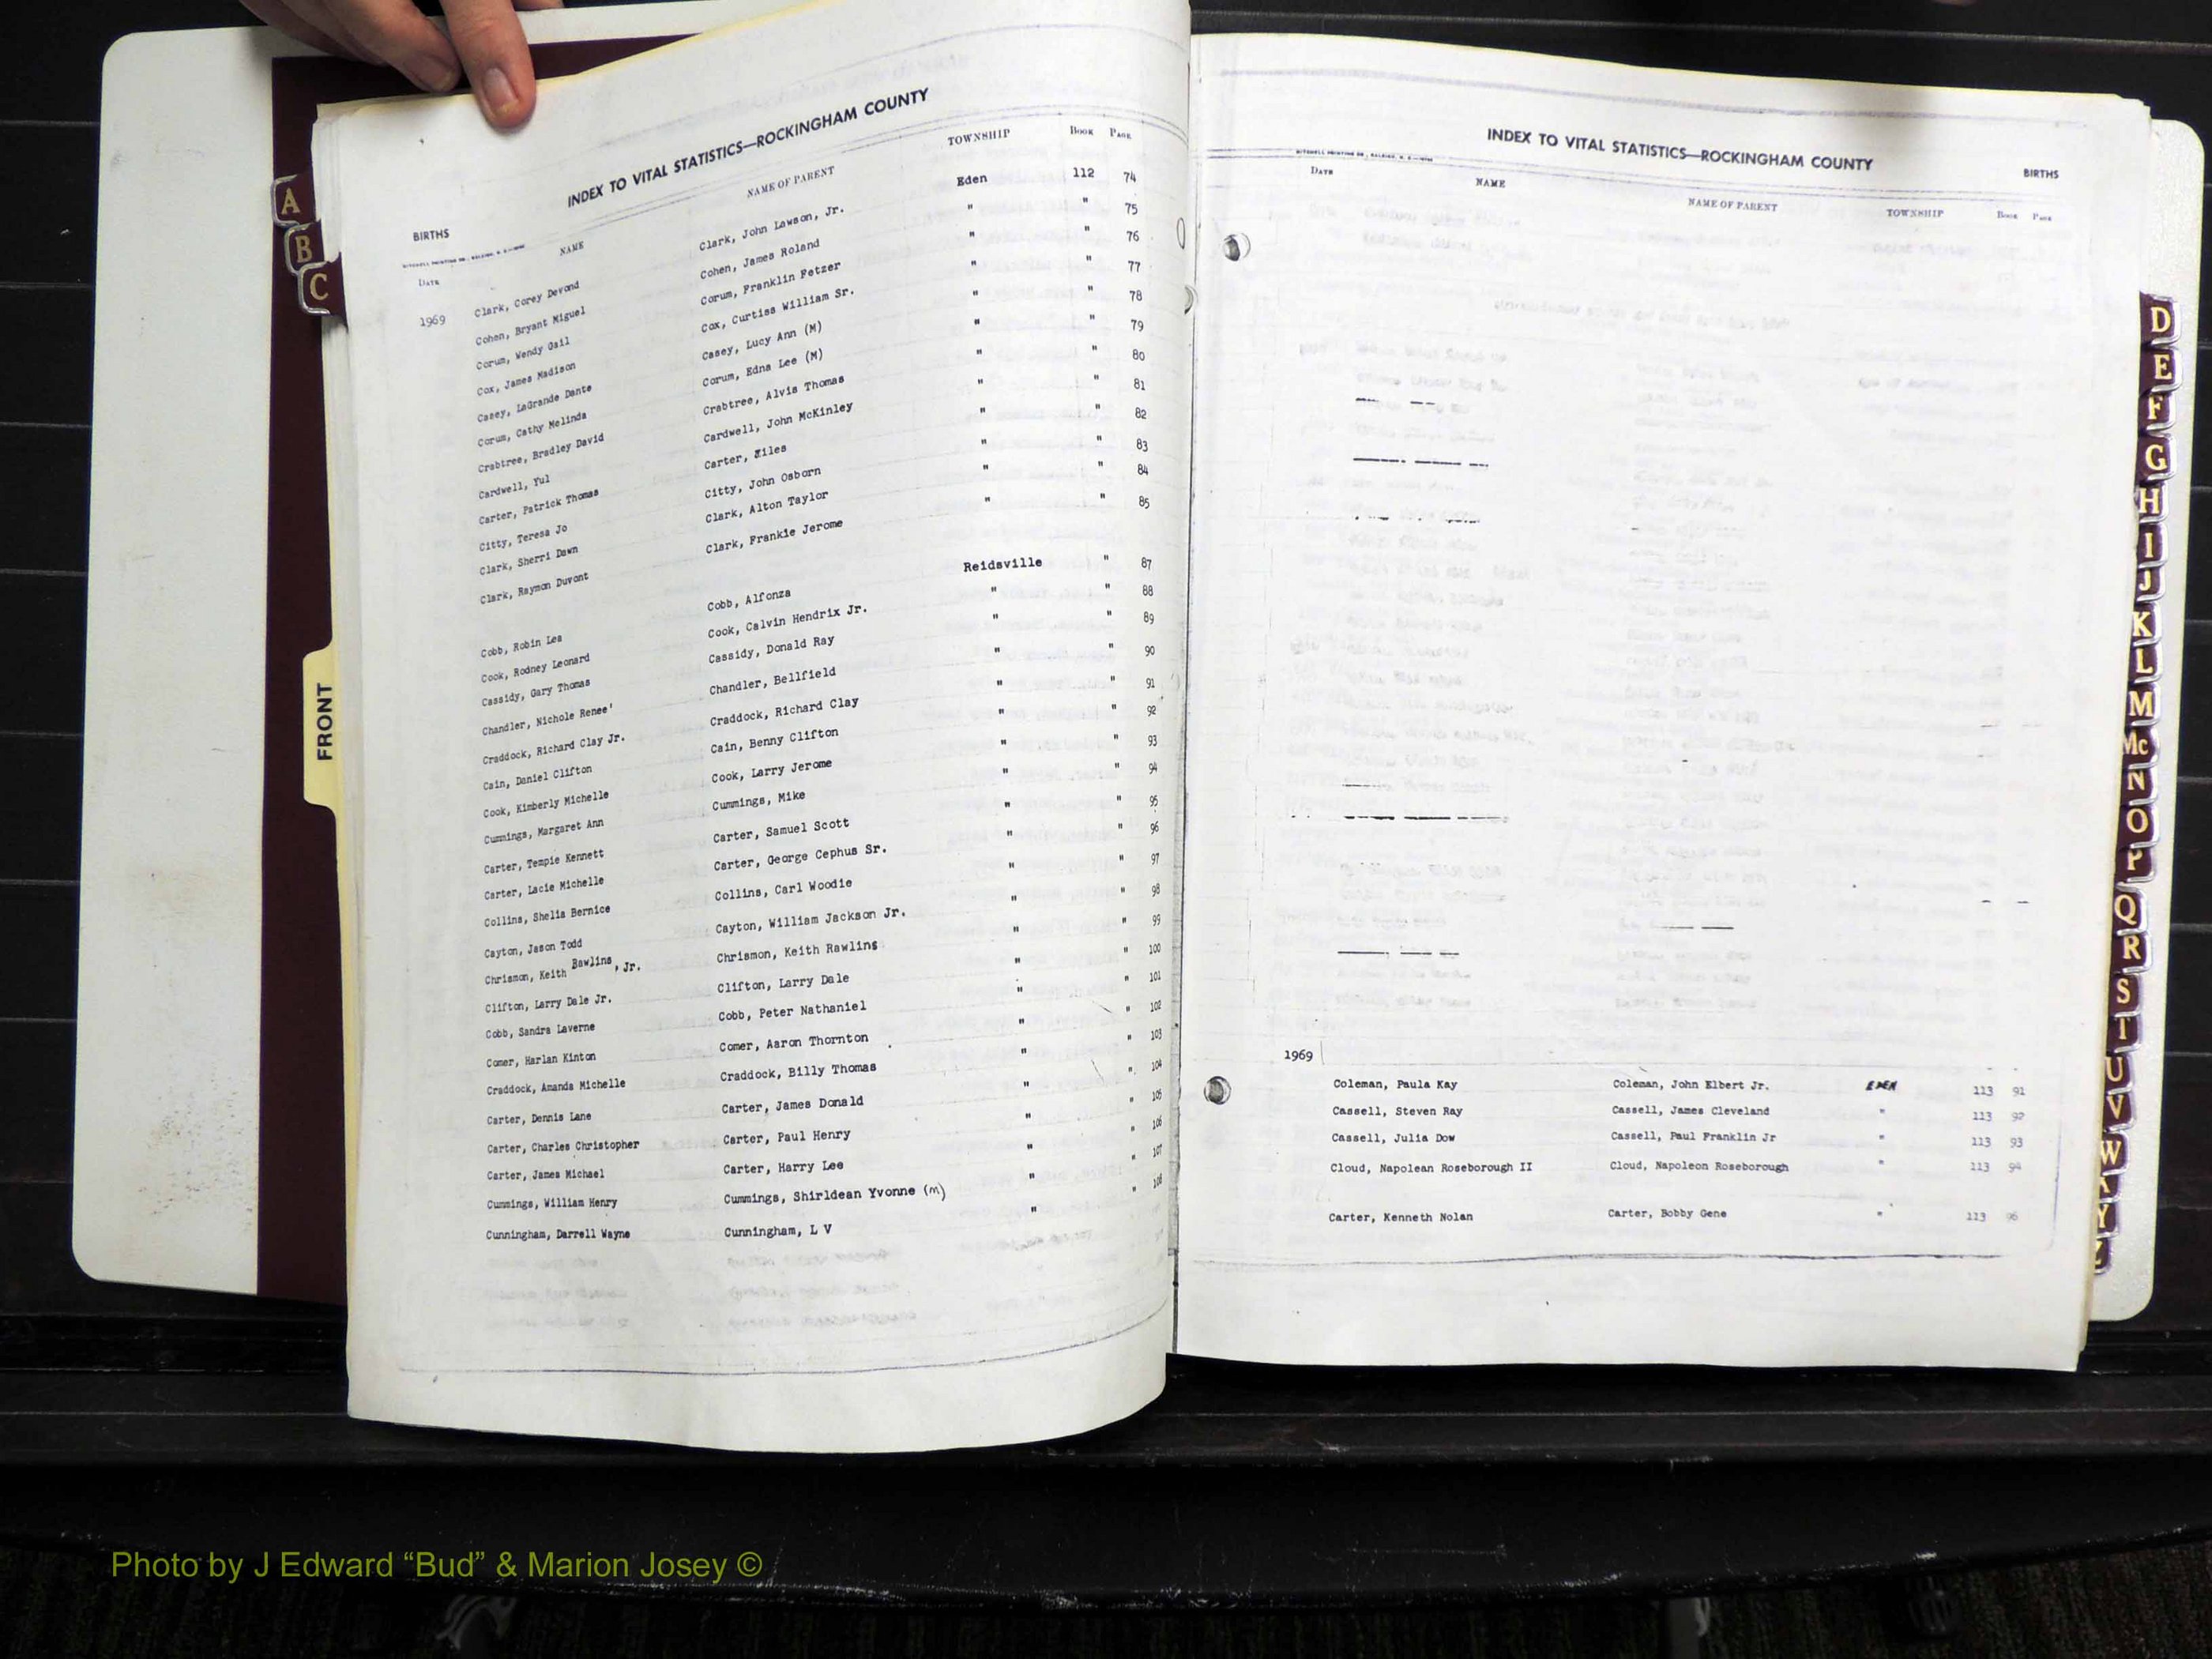 INDEX TO VITAL STATISTICS—ROCKINGHAM COUNTY
BIRTHS
DATE NAME NAME OF PARENT TOWNSHIP BOOK PAGE
1969 Clark, Corey Devond Clark, John Lawson, Jr. Eden 112 74
Cohen, Bryant Miguel Cohen, James Roland " " 75
Corum, Wendy Gail Corum, Franklin Fetzer " " 76
Cox, James Madison Cox, Curtiss William Sr. " " 77
Casey, LaGrande Dante Casey, Lucy Ann (M) " " 78
Corum, Cathy Melinda Corum, Edna Lee (M) " " 79
Crabtree, Bradley David Crabtree, Alvis Thomas " " 80
Cardwell, Yul Cardwell, John McKinley " " 81
Carter, Patrick Thomas Carter, Xiles " " 82
Citty, Teresa Jo Citty, John Osborn " " 83
Clark, Sherri Dawn Clark, Alton Taylor " " 84
Clark, Raymon Duvont Clark, Frankie Jerome " " 85
Cobb, Robin Lea Cobb, Alfonza Reidsville " 87
Cook, Rodney Leonard Cook, Calvin Hendrix Jr. " " 88
Cassidy, Gary Thomas Cassidy, Donald Ray " " 89
Chandler, Nichole Renee' Chandler, Bellfield " " 90
Craddock, Richard Clay Jr. Craddock, Richard Clay " " 91
Cain, Daniel Clifton Cain, Benny Clifton " " 92
Cook, Kimberly Michelle Cook, Larry Jerome " " 93
Cummings, Margaret Ann Cummings, Mike " " 94
Carter, Tempie Kennett Carter, Samuel Scott " " 95
Carter, Lacie Michelle Carter, George Cephus Sr. " " 96
Collins, Shelia Bernice Collins, Carl Woodie " " 97
Cayton, Jason Todd Cayton, William Jackson Jr. " " 98
Chrismon, Keith Rawlins, Jr. Chrismon, Keith Rawlins " " 99
Clifton, Larry Dale Jr. Clifton, Larry Dale " " 100
Cobb, Sandra Laverne Cobb, Peter Nathaniel " " 101
Comer, Harlan Kinton Comer, Aaron Thornton " " 102
Craddock, Amanda Michelle Craddock, Billy Thomas " " 103
Carter, Dennis Lane Carter, James Donald " " 104
Carter, Charles Christopher Carter, Paul Henry " " 105
Carter, James Michael Carter, Harry Lee " " 106
Cummings, William Henry Cummings, Shirldean Yvonne (M) " " 107
Cunningham, Darrell Wayne Cunningham, L V " " 108
INDEX TO VITAL STATISTICS—ROCKINGHAM COUNTY
BIRTHS
DATE NAME NAME OF PARENT TOWNSHIP BOOK PAGE
1969
Coleman, Paula Kay Coleman, John Elbert Jr. EDEN 113 91
Cassell, Steven Ray Cassell, James Cleveland " 113 92
Cassell, Julia Dow Cassell, Paul Franklin Jr " 113 93
Cloud, Napolean Roseborough II Cloud, Napoleon Roseborough " 113 94
Carter, Kenneth Nolan Carter, Bobby Gene " 113 96
A
B
C
FRONT
D
E
F
G
H
I
J
K
L
M
Mc
N
O
P
Q
R
S
T
U
V
W
Y
Z
Photo by J Edward “Bud” & Marion Josey ©